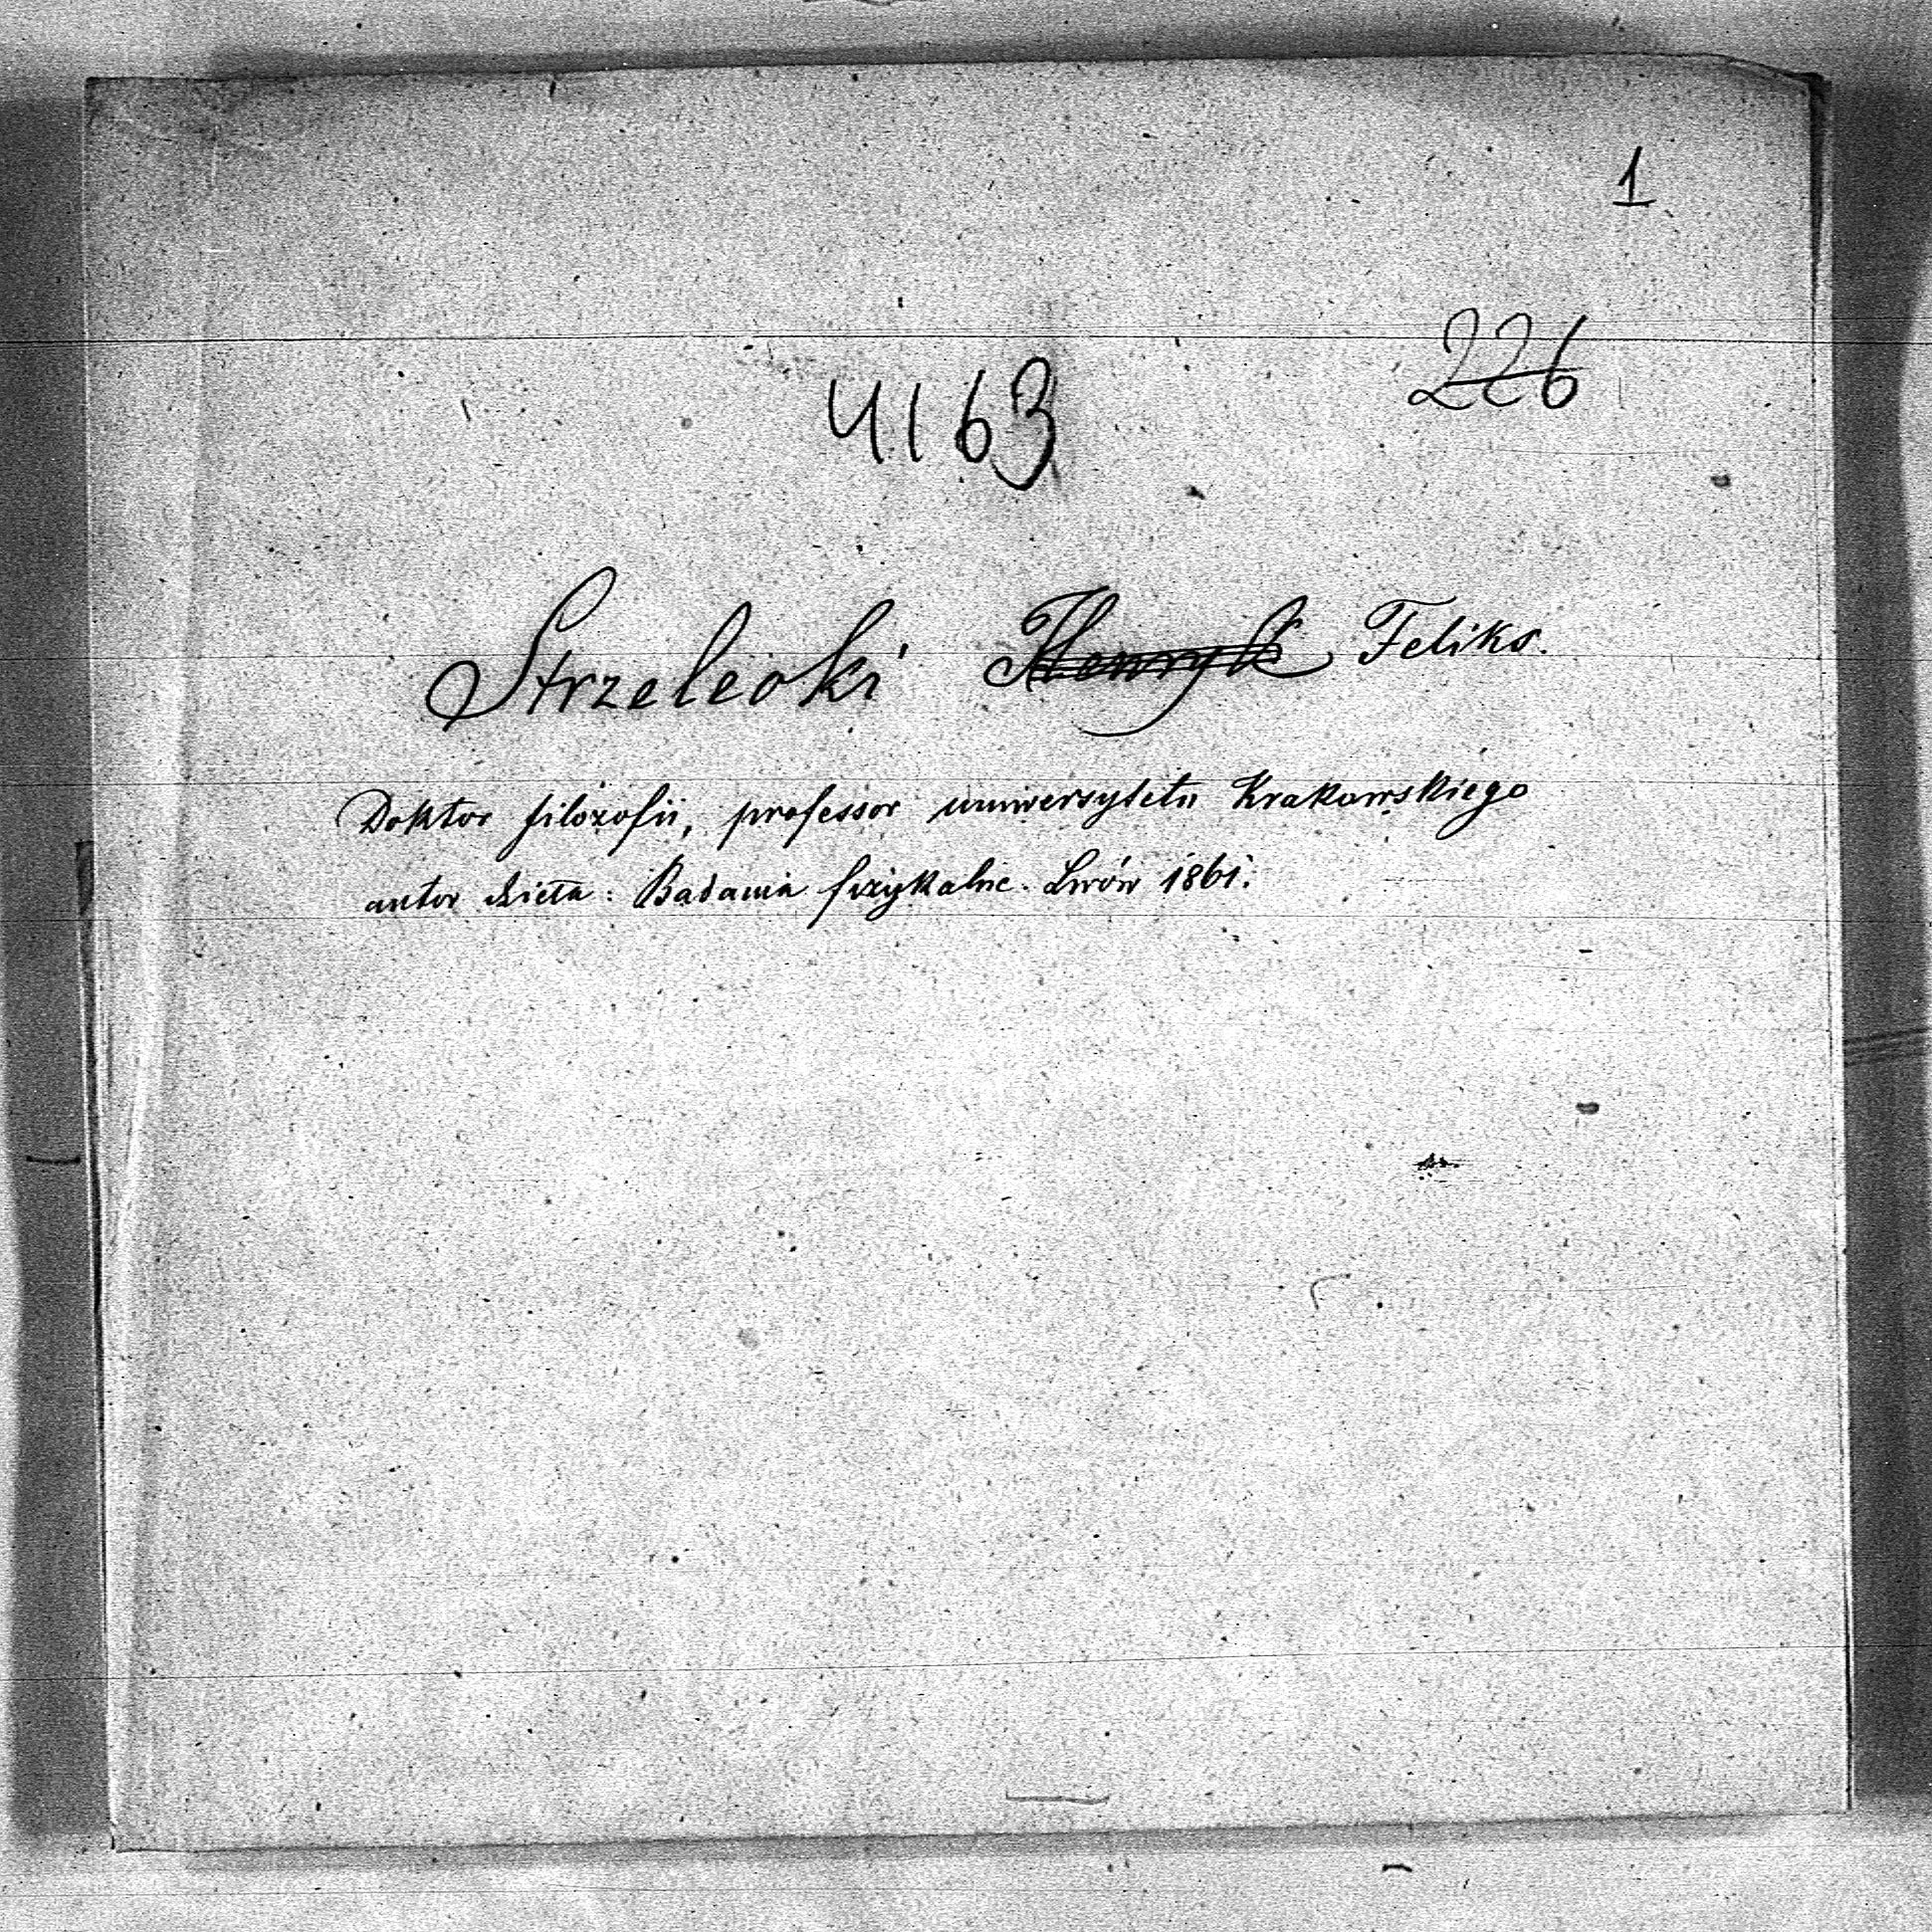 1
226
4163
Strzelecki Henryk Feliks.
Doktor filozofii, professor uniwersytetu Krakowskiego
autor dzieła: Badania fizykalne. Lwów 1861.